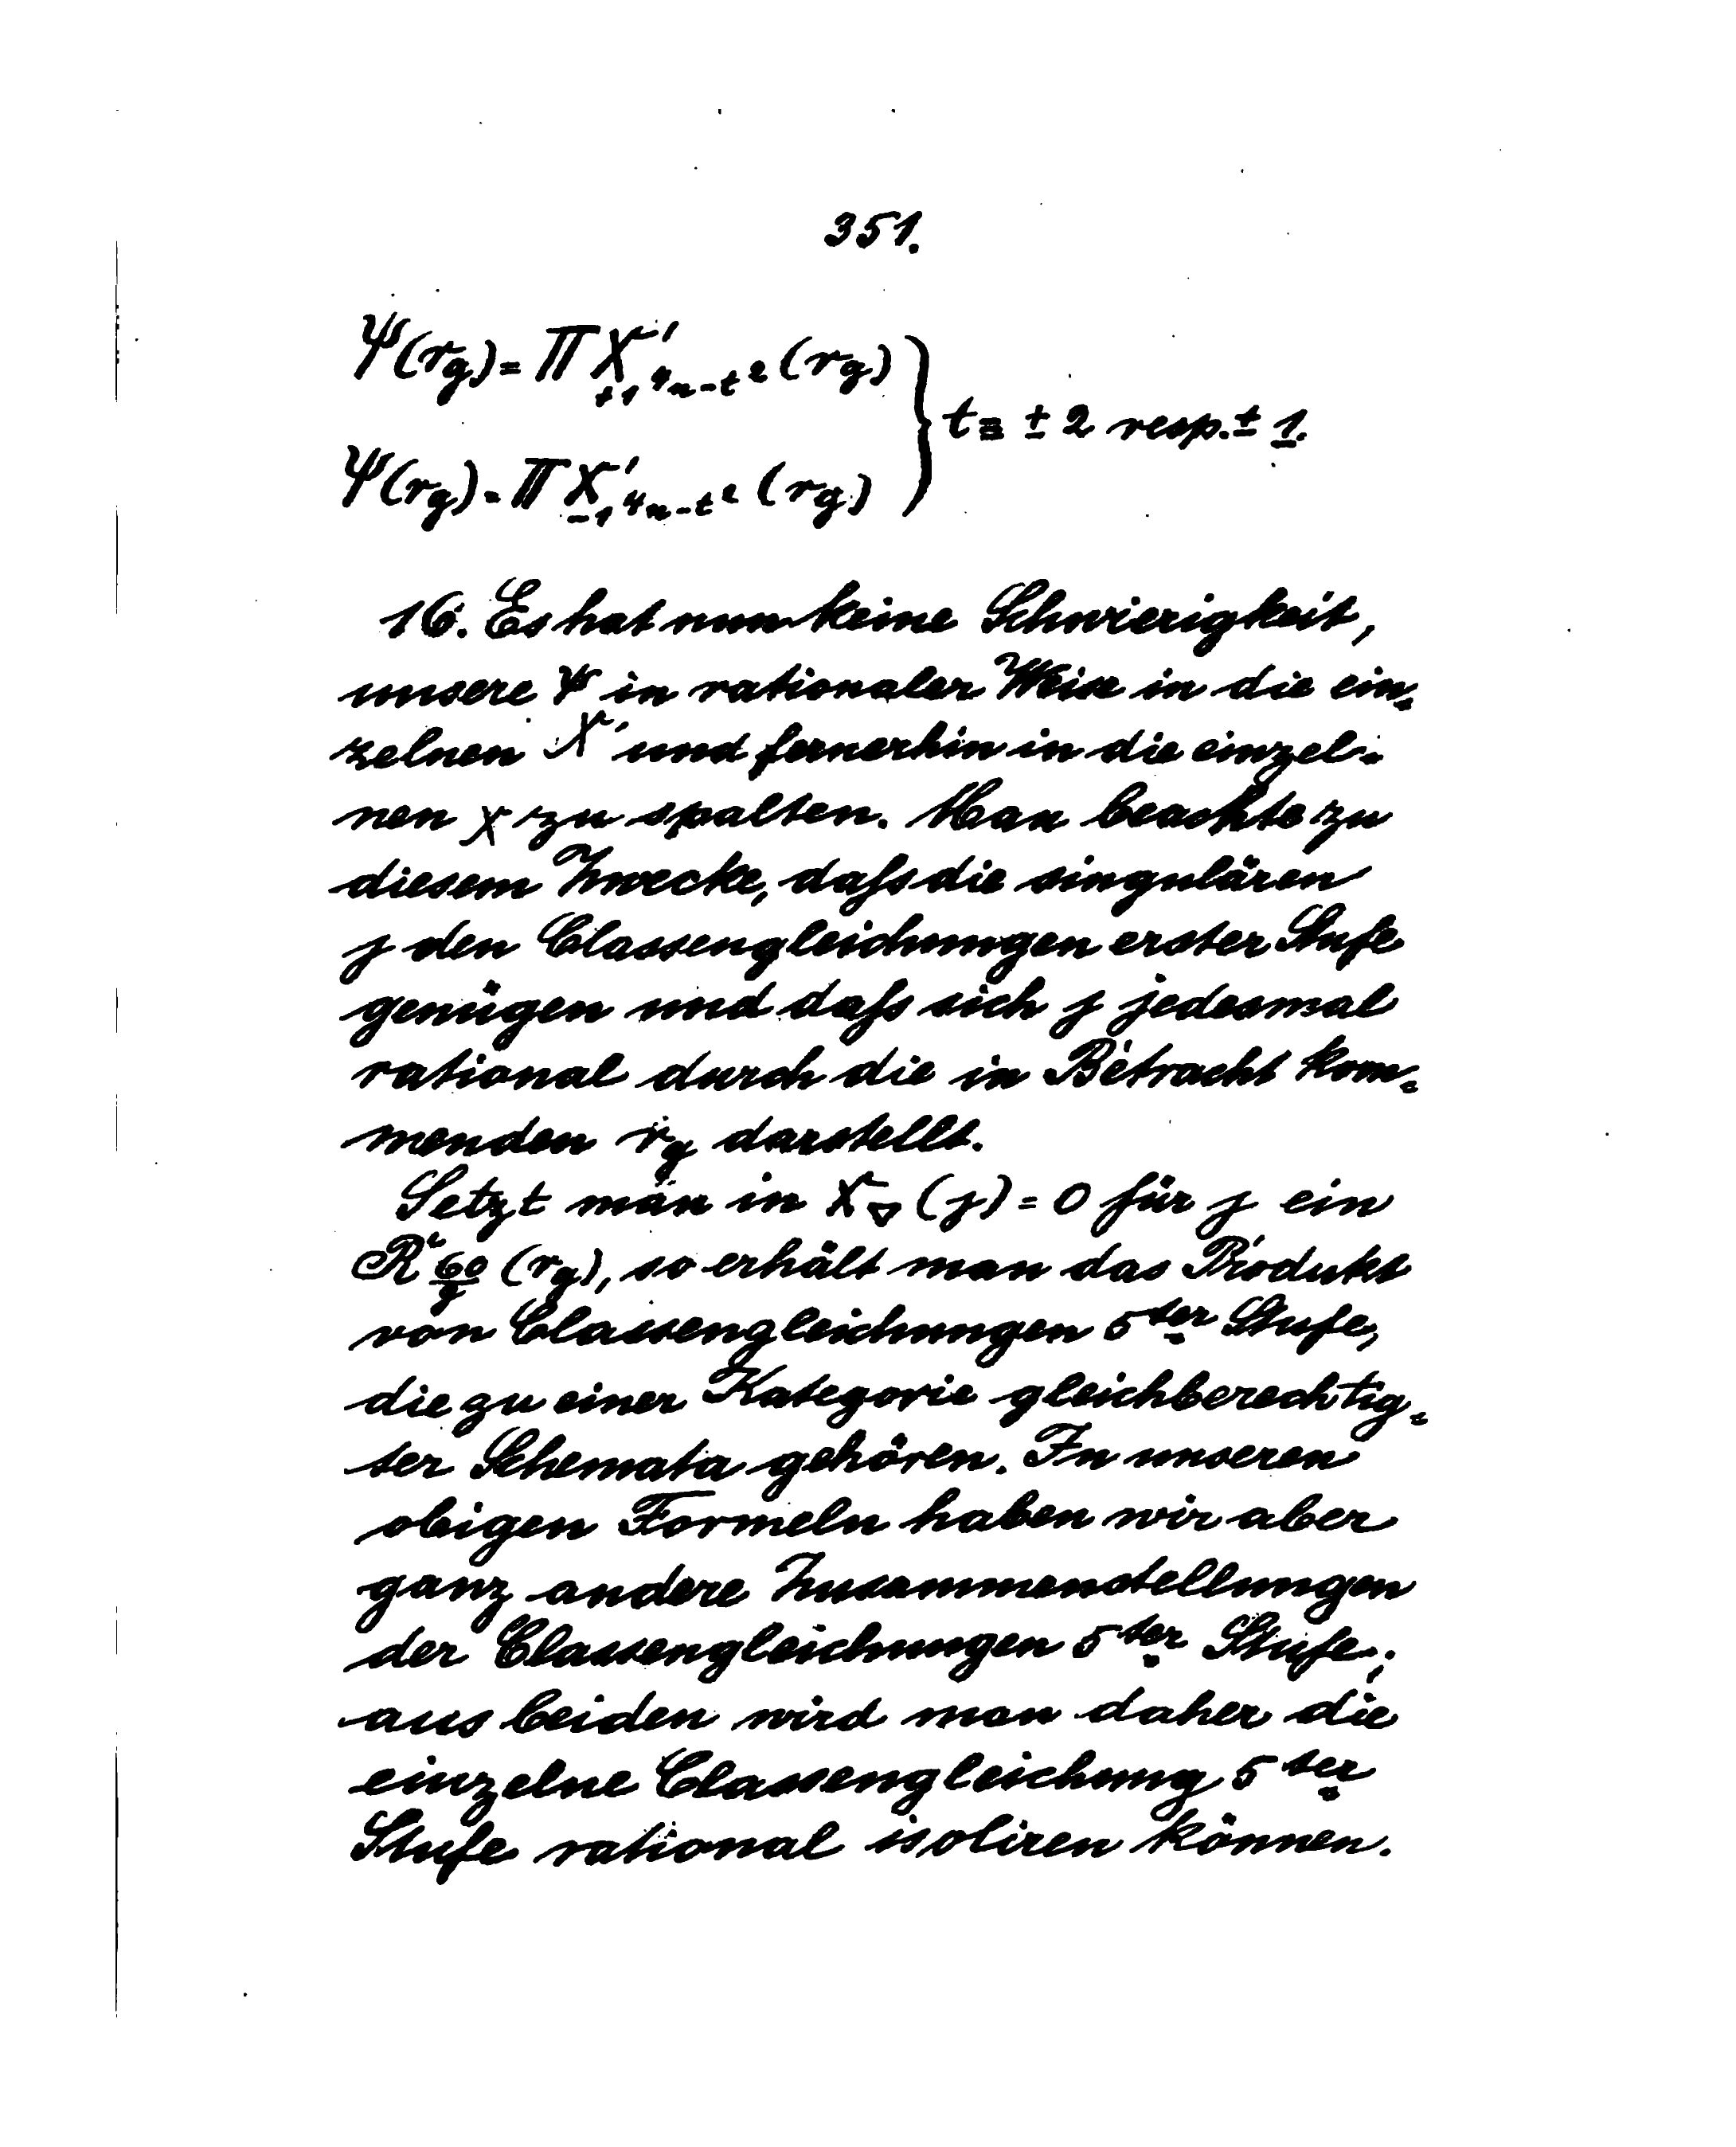 351.
Ψ(r_g) = Π X'_{+1, 4n-t²} (r_g)
Ψ(r_g) = Π X'_{-1, 4n-t²} (r_g) } t ≡ ± 2 resp. ± 1.
16. Es hat nun keine Schwierigkeit,
unsere Ψ in rationaler Weise in die ein=
zelnen X' und fernerhin in die einzel=
nen χ zu spalten. Man beachte zu
diesem Zwecke, daſs die singulären
j den Classengleichungen erster Stufe
genügen und daſs sich j jedesmal
rational durch die in Betracht kom=
menden r_g darstellt.
Setzt man in X_∇ (j) = 0 für j ein
R_{60/g} (r_g), so erhält man das Produkt
von Classengleichungen 5ter Stufe,
die zu einer Kategorie gleichberechtig=
ter Schemata gehören. In unseren
obigen Formeln haben wir aber
ganz andere Zusammenstellungen
der Classengleichungen 5ter Stufe;
aus beiden wird man daher die
einzelne Classengleichung 5ter
Stufe rational isoliren können.